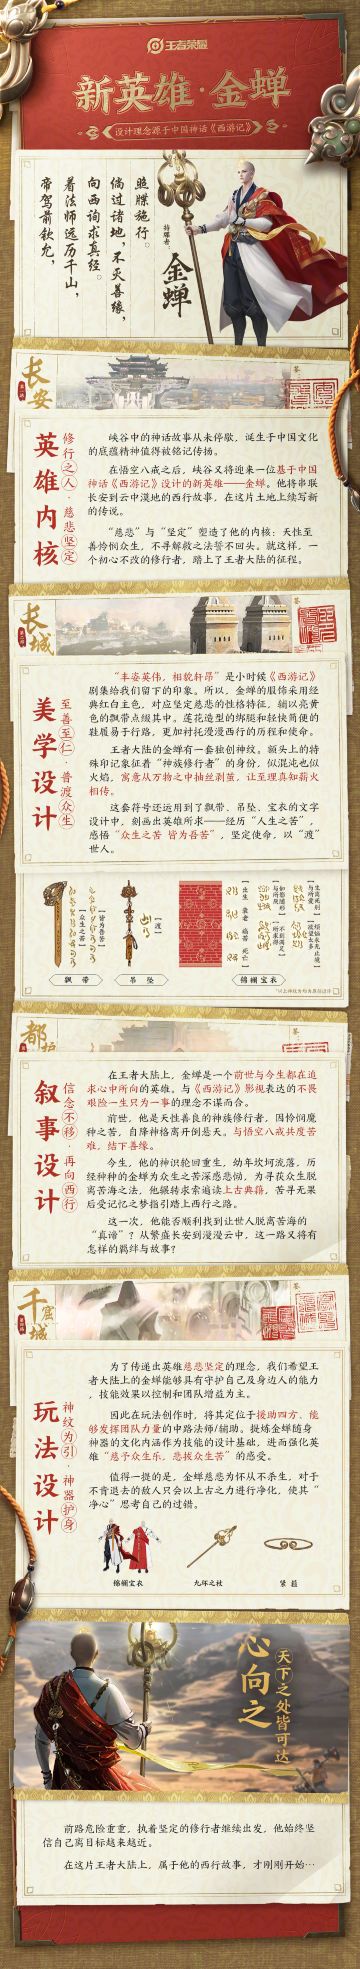 王者荣耀
新英雄·金蝉
设计理念源于中国神话《西游记》
帝驾前钦允，
着法师远历千山，
向西询求真经。
倘过诸地，不灭善缘，
照牒施行。
持牒者：
金蝉
长安
第一城
签：
英雄内核
修行之人·慈悲坚定
峡谷中的神话故事从未停歇，诞生于中国文化
的底蕴精神值得被铭记传扬。
在悟空八戒之后，峡谷又将迎来一位基于中国
神话《西游记》设计的新英雄——金蝉。他将串联
长安到云中漠地的西行故事，在这片土地上续写新
的传说。
“慈悲”与“坚定”塑造了他的内核：天性至
善怜悯众生，不寻解救之法誓不回头。就这样，一
个初心不改的修行者，踏上了王者大陆的征程。
长城
第二城
签：
美学设计
至善至仁·普渡众生
“丰姿英伟，相貌轩昂”是小时候《西游记》
剧集给我们留下的印象。所以，金蝉的服饰采用经
典红白主色，对应坚定慈悲的性格特征，辅以亮黄
色的飘带点缀其中。莲花造型的绑腿和轻快简便的
鞋履易于行路，更加衬托漫漫西行的历程和使命。
王者大陆的金蝉有一套独创神纹。额头上的特
殊印记象征着“神族修行者”的身份，似混沌也似
火焰，寓意从万物之中抽丝剥茧，让至理真知薪火
相传。
这套符号还运用到了飘带、吊坠、宝衣的文字
设计中，刻画出英雄所求——经历“人生之苦”，
感悟“众生之苦 皆为吾苦”，坚定使命，以“渡”
世人。
【众生之苦】
【皆为吾苦】
【渡】
出生 衰老 病苦 死亡
飘带
吊坠
锦襕宝衣
都护
签：
叙事设计
信念不移·再向西行
在王者大陆上，金蝉是一个前世与今生都在追
求心中所向的英雄。与《西游记》影视表达的不畏
艰险一生只为一事的理念不谋而合。
前世，他是天性善良的神族修行者，因怜悯魔
种之苦，自降神格离开倒悬天。与悟空八戒共度苦
难，结下善缘。
今生，他的神识轮回重生，幼年坎坷流落，历
经种种的金蝉为众生之苦深感悲恸，为寻获众生脱
离苦海之法，他辗转求索遍读上古典籍，苦寻无果
后受记忆之梦指引踏上西行之路。
这一次，他能否顺利找到让世人脱离苦海的
“真谛”？从繁盛长安到漫漫云中，这一路又将有
怎样的羁绊与故事？
千窟城
第四城
签：
玩法设计
神纹为引·神器护身
为了传递出英雄慈悲坚定的理念，我们希望王
者大陆上的金蝉能够具有守护自己及身边人的能力
，技能效果以控制和团队增益为主。
因此在玩法创作时，将其定位于援助四方、能
够发挥团队力量的中路法师/辅助。提炼金蝉随身
神器的文化内涵作为技能的设计基础，进而强化英
雄“慈予众生乐，悲拔众生苦”的感受。
值得一提的是，金蝉慈悲为怀从不杀生，对于
不肯退去的敌人只会以上古之力进行净化，使其“
净心”思考自己的过错。
锦襕宝衣
九环之杖
紧箍
心向之
天下之处皆可达
前路危险重重，执着坚定的修行者继续出发，他始终坚
信自己离目标越来越近。
在这片王者大陆上，属于他的西行故事，才刚刚开始…